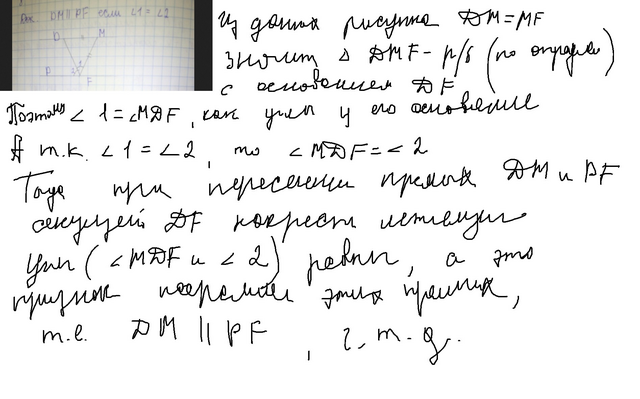 Док DM || PF если ∠1 = ∠2
D M
P F
Из данных рисунка DM = MF
значит Δ DMF - р/б (по определ)
с основанием DF
Поэтому ∠ 1 = ∠MDF, как углы у его основания
А т.к. ∠1 = ∠2, то ∠MDF = ∠2
Тогда при пересечении прямых DM и PF
секущей DF накрест лежащие
углы (∠MDF и ∠2) равны, а это
признак паралл этих прямых,
т.е. DM || PF, ч.т.д.